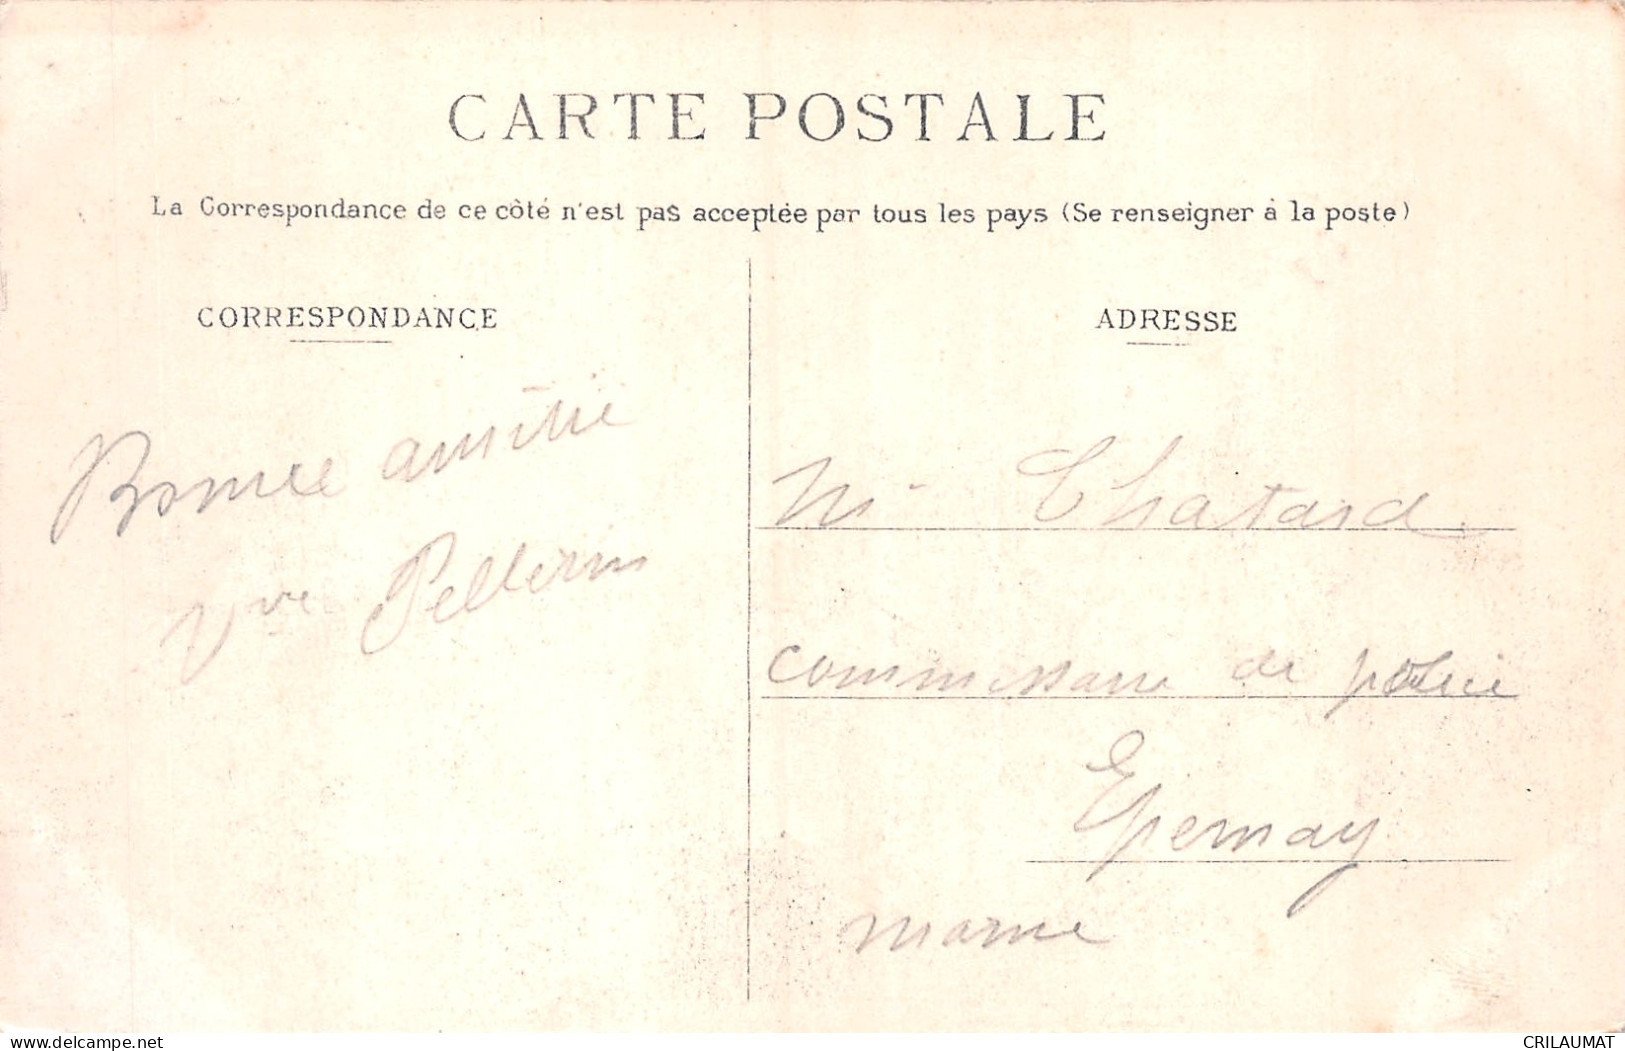 CARTE POSTALE
La Correspondance de ce côté n'est pas acceptée par tous les pays (Se renseigner à la poste)
CORRESPONDANCE
Bonne amitié
Vve Pellerin
ADRESSE
Mr Chatard
commissaire de police
Epernay
marne
www.delcampe.net
CRILAUMAT